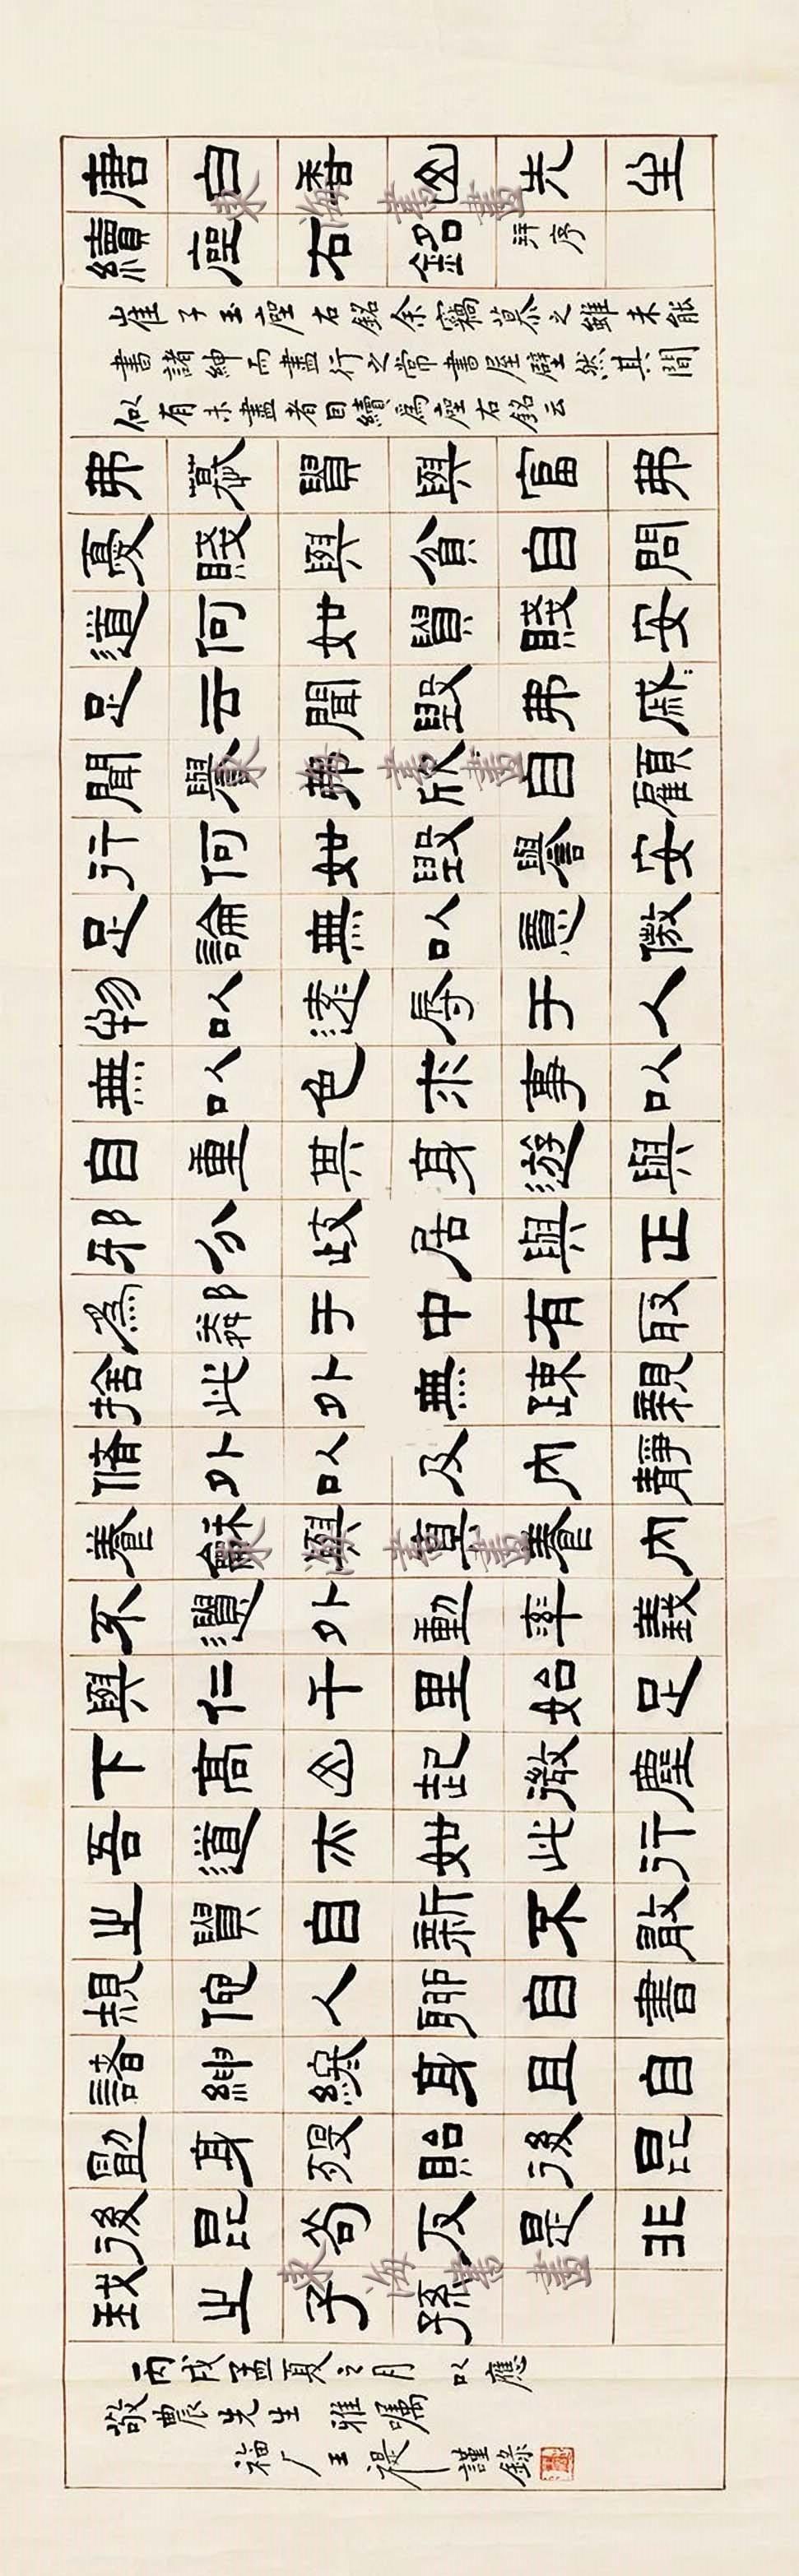 唐白香山先生
續座右銘并序
崔子玉座右銘余竊慕之雖未能
書諸紳而盡行之常書屋壁然其間
似有未盡者因續爲座右銘云
弗慕貴與富弗
憂賤與貧自問
道何如貴賤安
足云聞毀弗戚〻
聞譽弗欣自顧
行何如毀譽安
足論無以意傲
物以遠辱于人
無以色求事以
自重其身遊與
邪分歧居與正
爲鄰于中有取
捨此外無疎親
脩外以及內靜
養龢與真養內
不遺外動率義
與仁千里始足
下高山起微塵
吾道亦如此行
之貴自新不敢
規他人聊自書
諸紳終身且自
勖身歿貽後昆
後昆苟反是非
我之子孫
丙戌孟夏之月以應
敬農先生雅嘱
福厂王禔謹錄
東海書畫
東海書畫
東海書畫
東海書畫